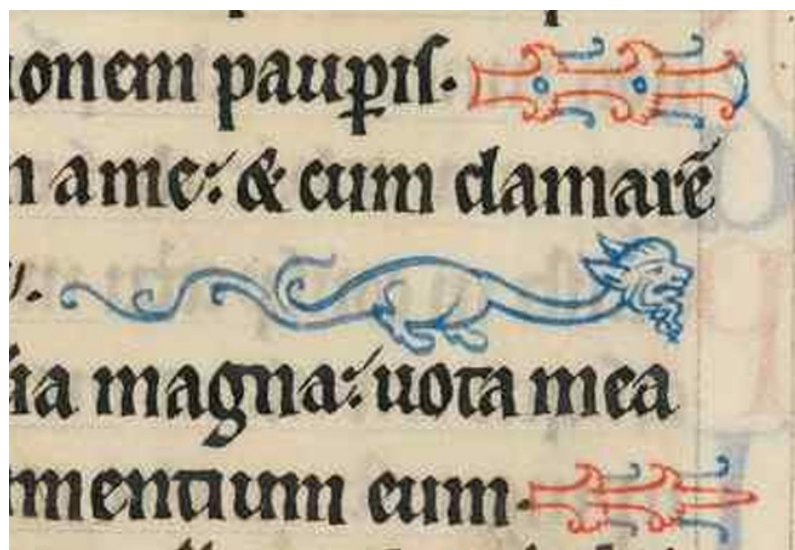 onem paup̲is.
a me: & cum clamarē
ia magna: uota mea
mentium eum.